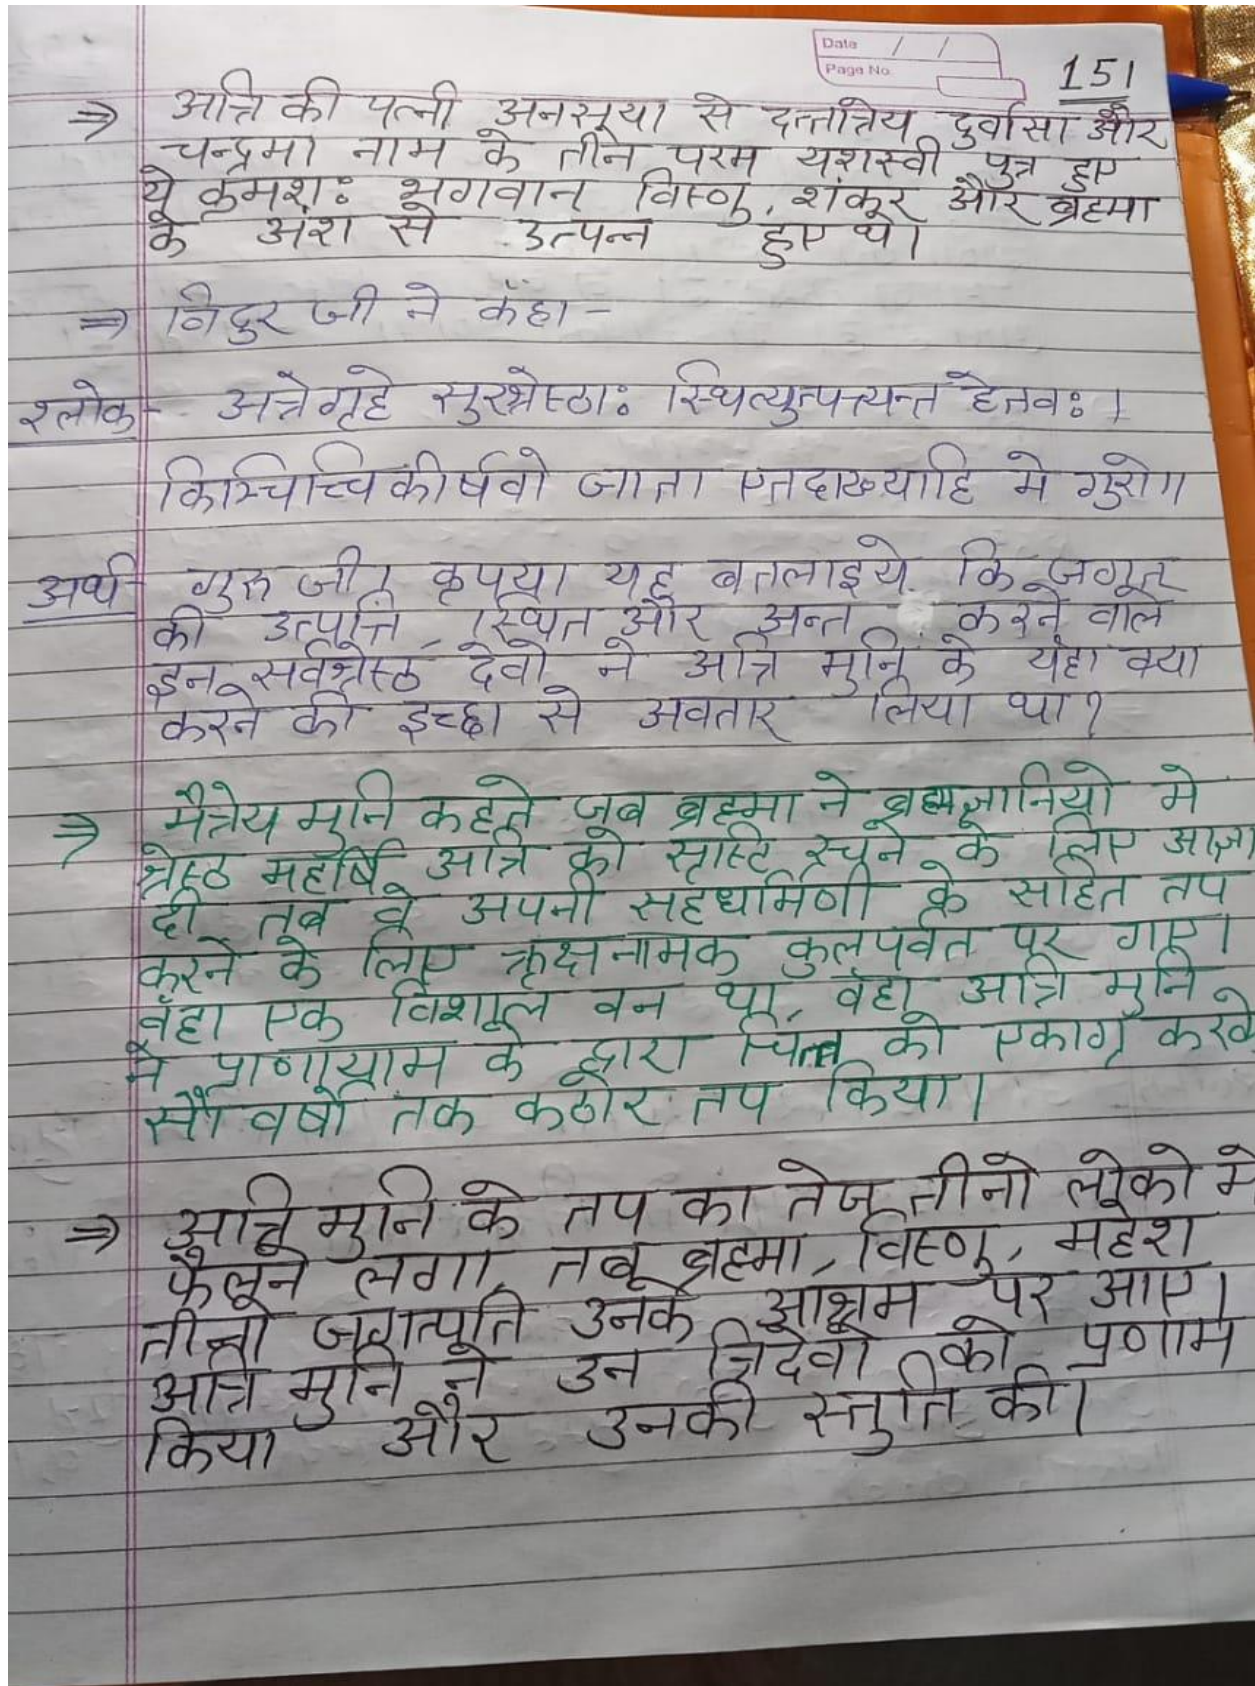 Date / /
Page No.
151
⇒ अत्रि की पत्नी अनसूया से दत्तात्रेय दुर्वासा और
चन्द्रमा नाम के तीन परम यशस्वी पुत्र हुए
ये क्रमशः भगवान विष्णु, शंकर और ब्रह्मा
के अंश से उत्पन्न हुए थे।
⇒ विदुर जी ने कँहा –
श्लोक – अत्रेगृहे सुरश्रेष्ठाः स्थित्युत्पत्त्यन्त हेतवः।
किञ्चिच्चिकीर्षवो जाता एतदाख्याहि मे गुरो॥
अर्थ – गुरु जी। कृपया यह बतलाइये कि जगत
की उत्पत्ति, स्थित और अन्त करने वाले
इन सर्वश्रेष्ठ देवो ने अत्रि मुनि के यँहा क्या
करने की इच्छा से अवतार लिया था?
⇒ मैत्रेय मुनि कहते जब ब्रह्मा ने ब्रह्मज्ञानियो मे
श्रेष्ठ महर्षि अत्रि को सृष्टि रचने के लिए आज्ञा
दी तब वे अपनी सहधर्मिणी के सहित तप
करने के लिए ऋक्षनामक कुलपर्वत पर गए।
वँहा एक विशाल वन था, वँहा अत्रि मुनि
ने प्राणायाम के द्वारा चित्त को एकाग्र करके
सौ वर्षो तक कठोर तप किया।
⇒ अत्रि मुनि के तप का तेज तीनो लोको मे
फैलने लगा, तब ब्रह्मा, विष्णु, महेश
तीनो जगत्पति उनके आश्रम पर आए।
अत्रि मुनि ने उन त्रिदेवो को प्रणाम
किया और उनकी स्तुति की।